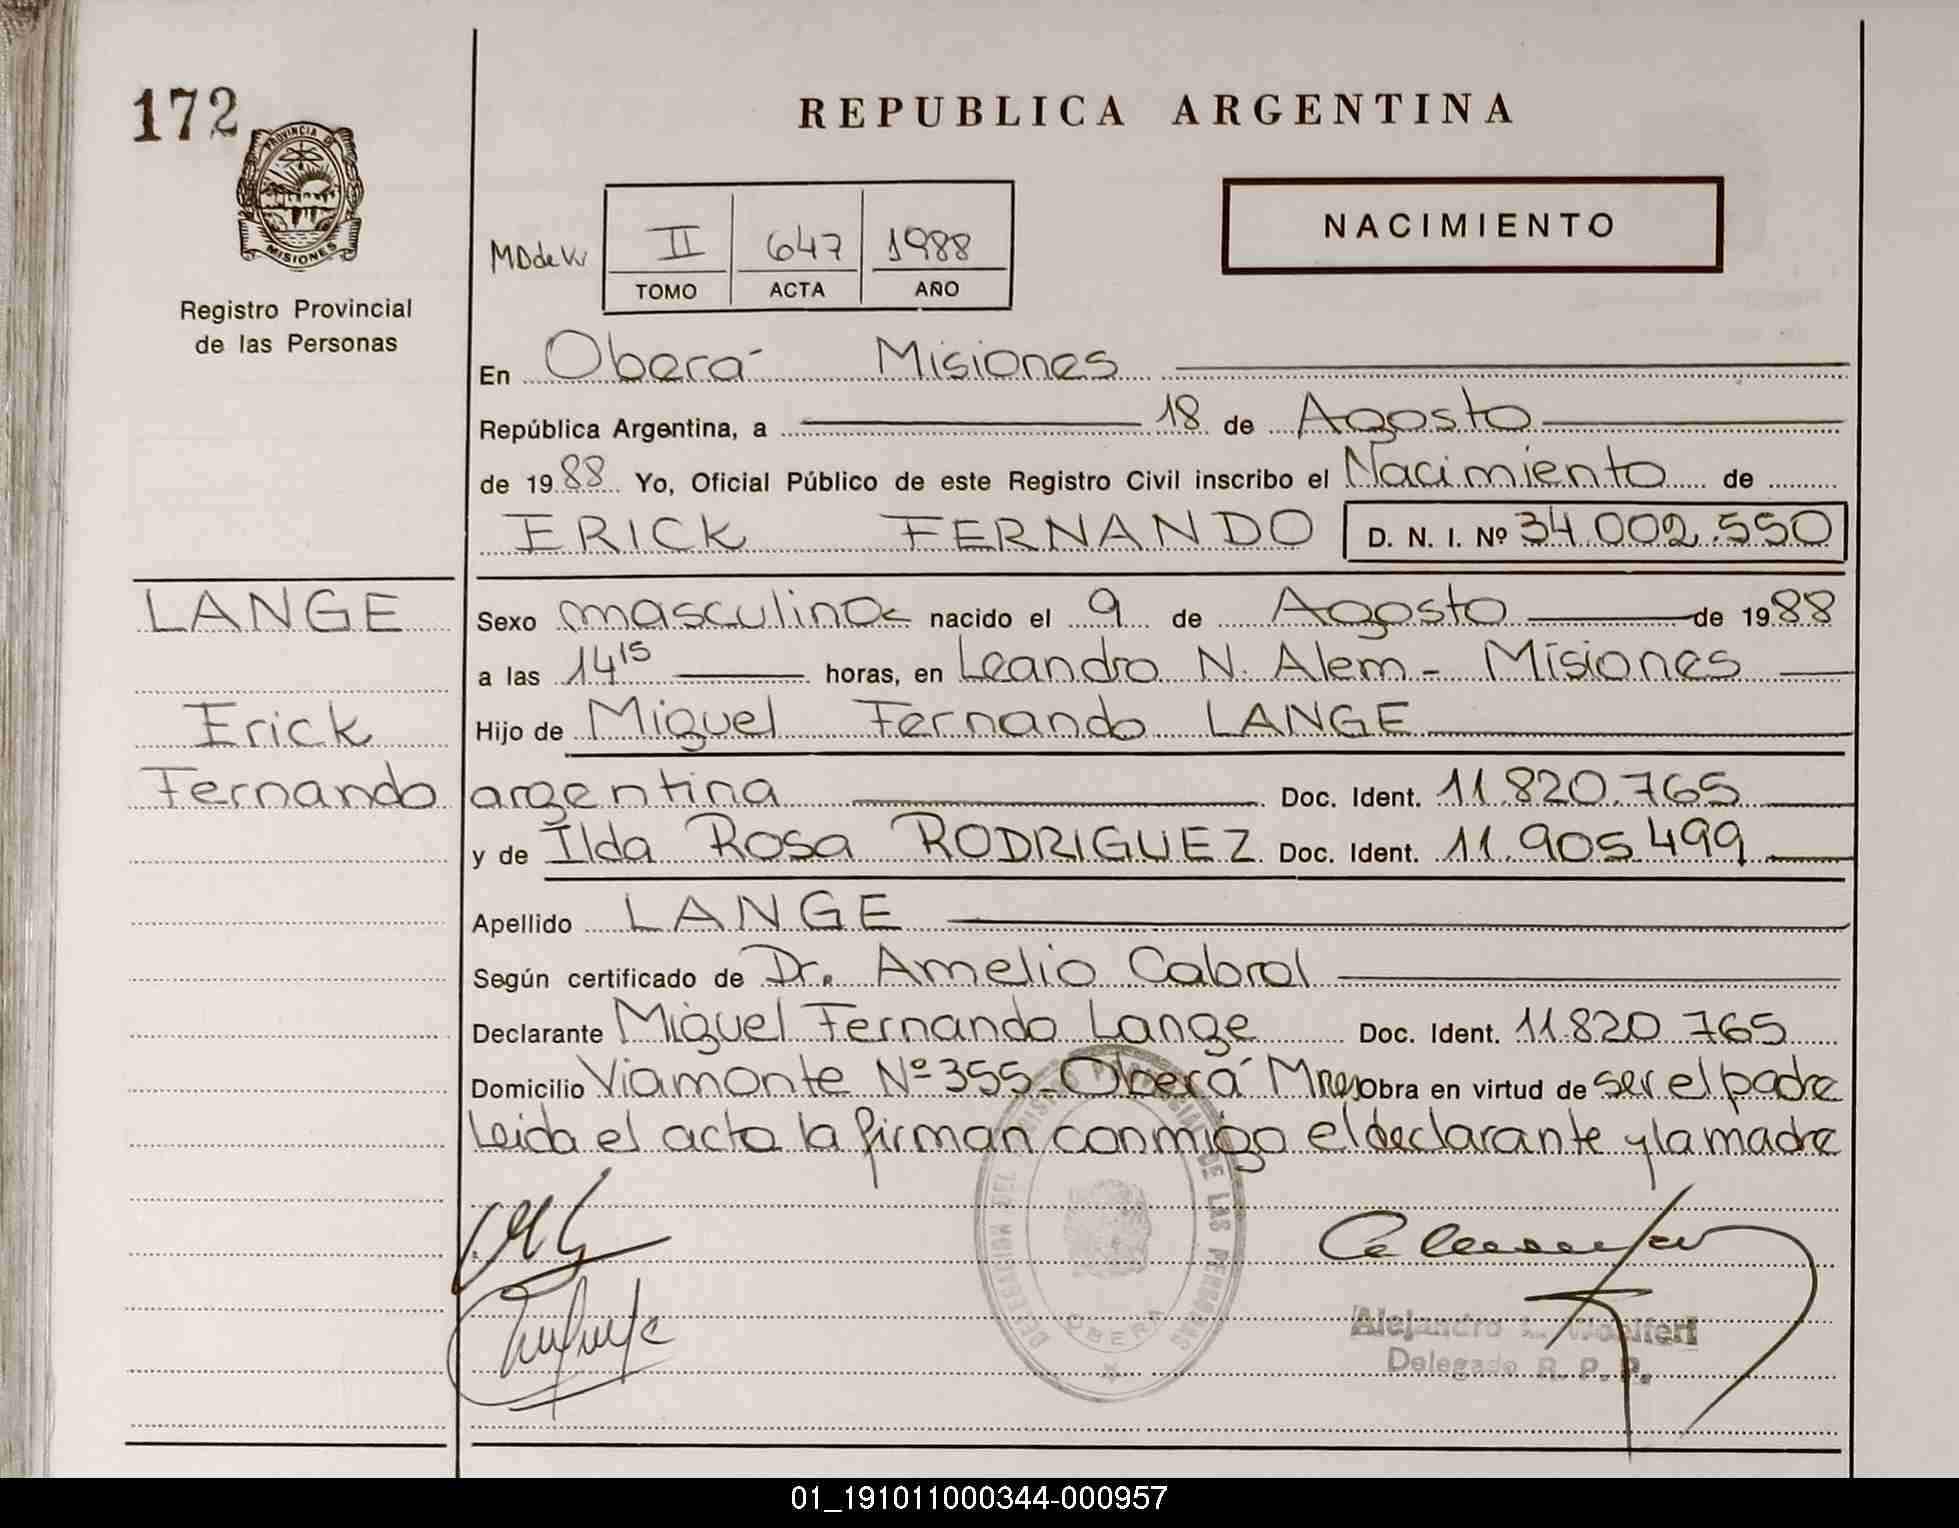 172
REPUBLICA ARGENTINA
PROVINCIA DE
MISIONES
Registro Provincial
de las Personas
NACIMIENTO
II 647 1988
TOMO ACTA AÑO
En Oberá Misiones
República Argentina, a 18 de Agosto
de 1988 Yo, Oficial Público de este Registro Civil inscribo el Nacimiento de
ERICK FERNANDO D. N. I. Nº 34.002.550
LANGE
Erick
Fernando
Sexo masculino nacido el 9 de Agosto de 1988
a las 14 15 horas, en Leandro N. Alem - Misiones
Hijo de Miguel Fernando LANGE
argentina Doc. Ident. 11.820.765
y de Ilda Rosa RODRIGUEZ Doc. Ident. 11.905.499
Apellido LANGE
Según certificado de Dr. Amelio Cabral
Declarante Miguel Fernando Lange Doc. Ident. 11.820.765
Domicilio Viamonte Nº 355 - Oberá Mnes Obra en virtud de ser el padre
Leida el acta la firman conmigo el declarante y la madre
DELEGACION DEL REGISTRO PROVINCIAL DE LAS PERSONAS
OBERA
Alejandro L.
Delegado R. P. P.
01_191011000344-000957